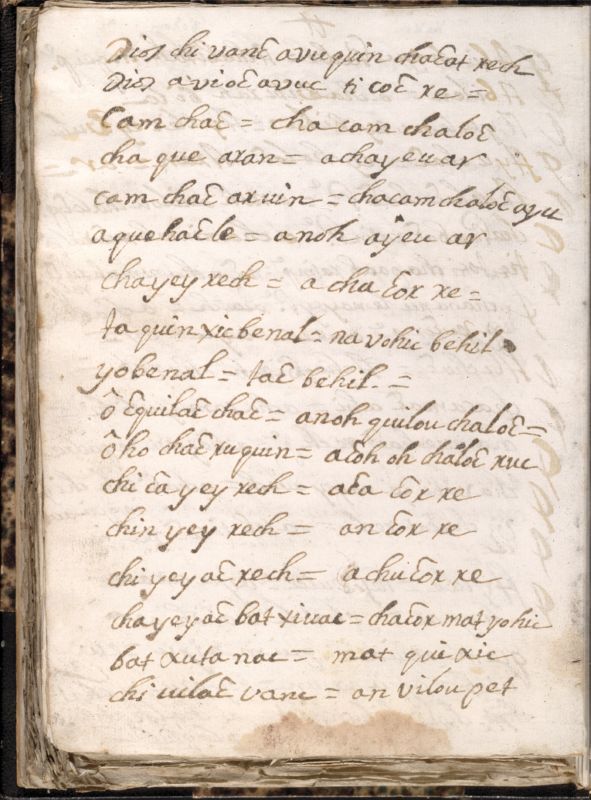 Dios chi vanc̄ avuquin chac̄at rech
Dios avioc̄ avuc ti coc̄ re =
Cam chac̄ = cha cam chaloc̄
cha que aran = achayeu ar
cam chac̄ aruin = chacam chaloc̄ ayu
aquehac̄le = anoh ayeu ar
chayey rech = a cha c̄ox re =
ta quin xic benal = na vohic behil
yobenal = tac̄ behil. =
ô c̄quilac̄ chac̄ = anoh quilou chaloc̄ =
ôho chac̄ ruquin = ac̄oh oh chaloc̄ ruc
chi c̄a yey rech = ac̄a c̄ox re
chin yey rech = an c̄ox re
chi yey ac̄ rech = achu c̄ox re
chayeyac̄ bat xiuac = chac̄ox mat yohic
bat xuta nac = mat qui xic
chi uilac̄ vanc = an vilou pet